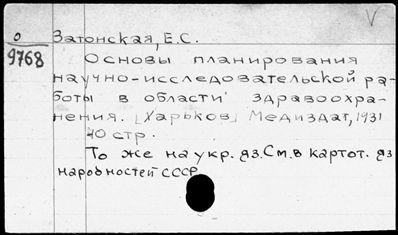 V
0 Затонская, Е.С.
9768
Основы планирования
научно-исследовательской ра-
боты в области здравоохра-
нения. [Харьков] Медиздат, 1931
40 стр.
То же на укр. яз. См. в картот. яз
народностей СССР